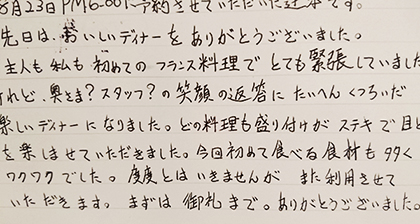 8月23日PM6:00に予約させていただいた辻本です。
先日は、おいしいディナーをありがとうございました。
主人も私も初めてのフランス料理でとても緊張していました
けれど、奥さま?スタッフ?の笑顔の返答にたいへんくつろいだ
楽しいディナーになりました。どの料理も盛り付けがステキで目と
を楽しませていただきました。今回初めて食べる食材も多く
ワクワクでした。度度とはいきませんが また利用させて
いただきます。まずは御礼まで。ありがとうございました。